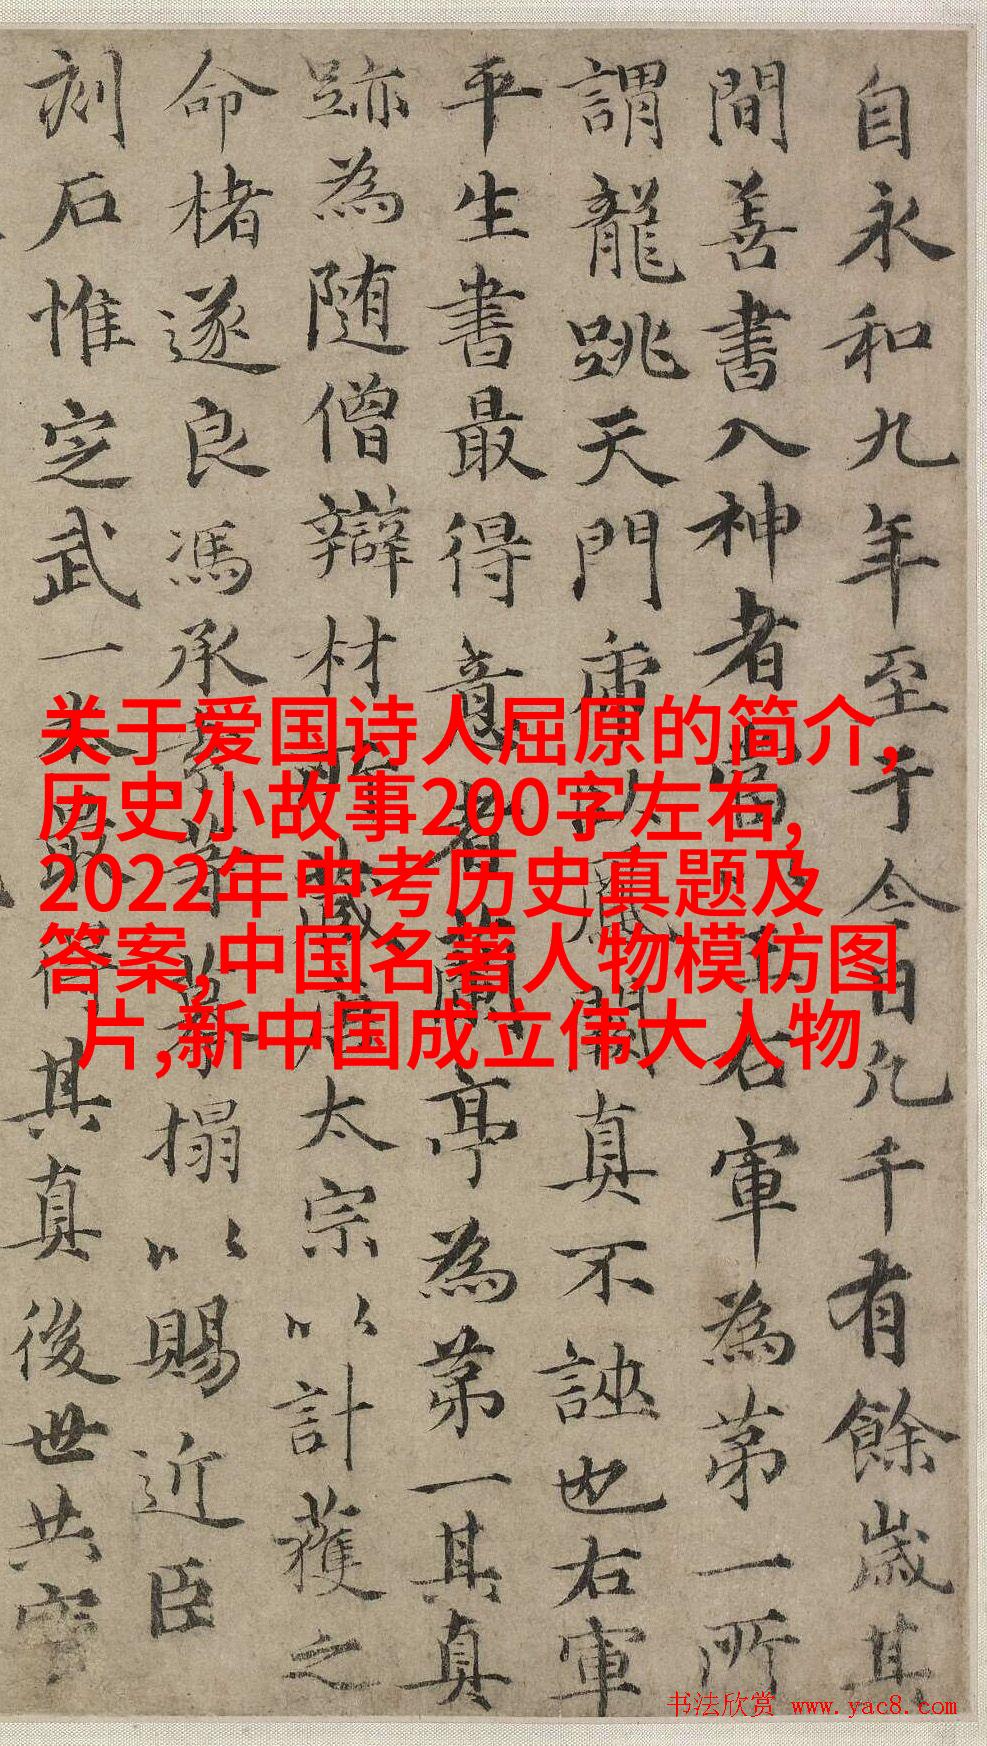 自永和九年至于今日凡千有餘歲其
間善書入神者當王右軍為第一所
謂龍跳天門虎卧鳳閣真不誣也右軍
平生書最得意者蘭亭為第一其真
跡為随僧辯材所藏唐太宗以計獲之
命楮遂良馮承素搨以賜近臣
刻石惟定武一本最得其真後世共寶
关于爱国诗人屈原的简介,
历史小故事200字左右,
2022年中考历史真题及
答案,中国名著人物模仿图
片,新中国成立伟大人物
书法欣赏 www.yac8.com